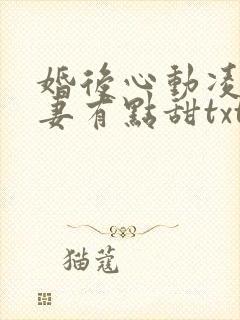 婚後心動凌
妻有點甜txt
猫蔻